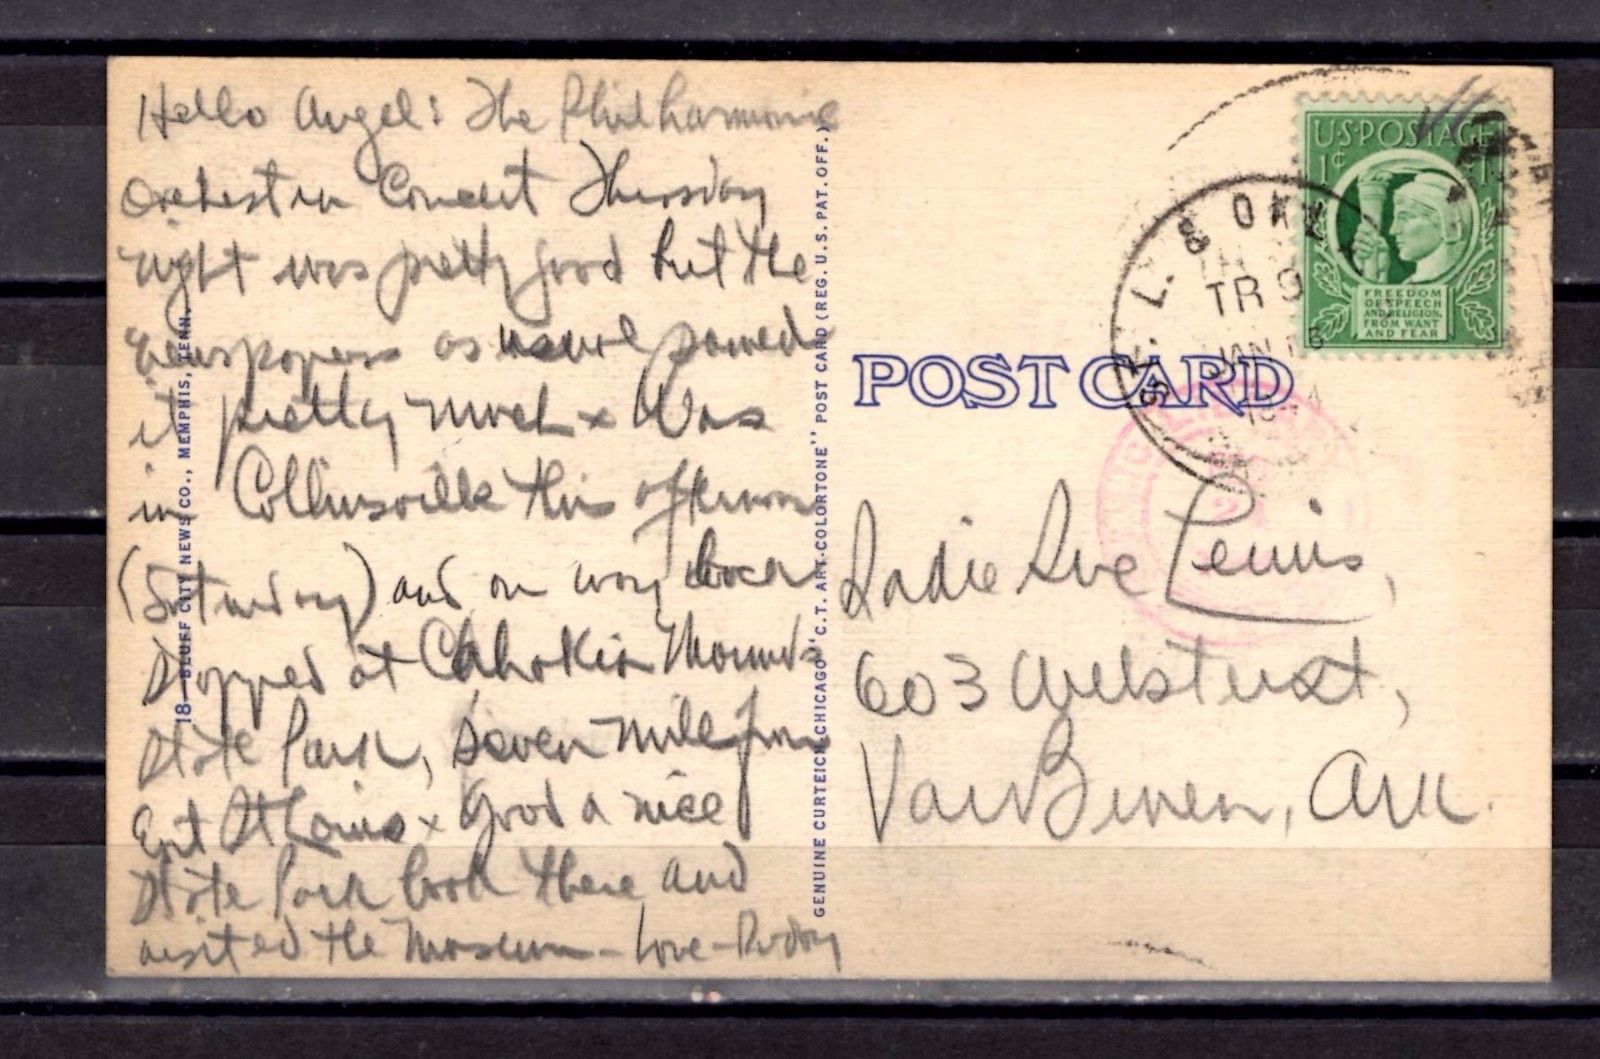 Hello Angel: The Philharmonic
Orchestra Concert Thursday
night was pretty good but the
newspapers as usual panned
it pretty much x Was
in Collinsville this afternoon
(Saturday) and on way back
stopped at Cahokia Mounds
State Park, seven mile from
East St Louis x Good a nice
State Park look there and
visited the Museum - Love - Rudy
18—BLUFF CITY NEWS CO., MEMPHIS, TENN.
GENUINE CURTEICH, CHICAGO "C.T. ART-COLORTONE" POST CARD (REG. U.S. PAT. OFF.)
POST CARD
ST. L. & OK
TR 9
JAN
U·S·POSTAGE
1¢ 1¢
FREEDOM
OF SPEECH
AND RELIGION,
FROM WANT
AND FEAR
Sadie Sue
603 Webster St,
Van Buren, Ark.